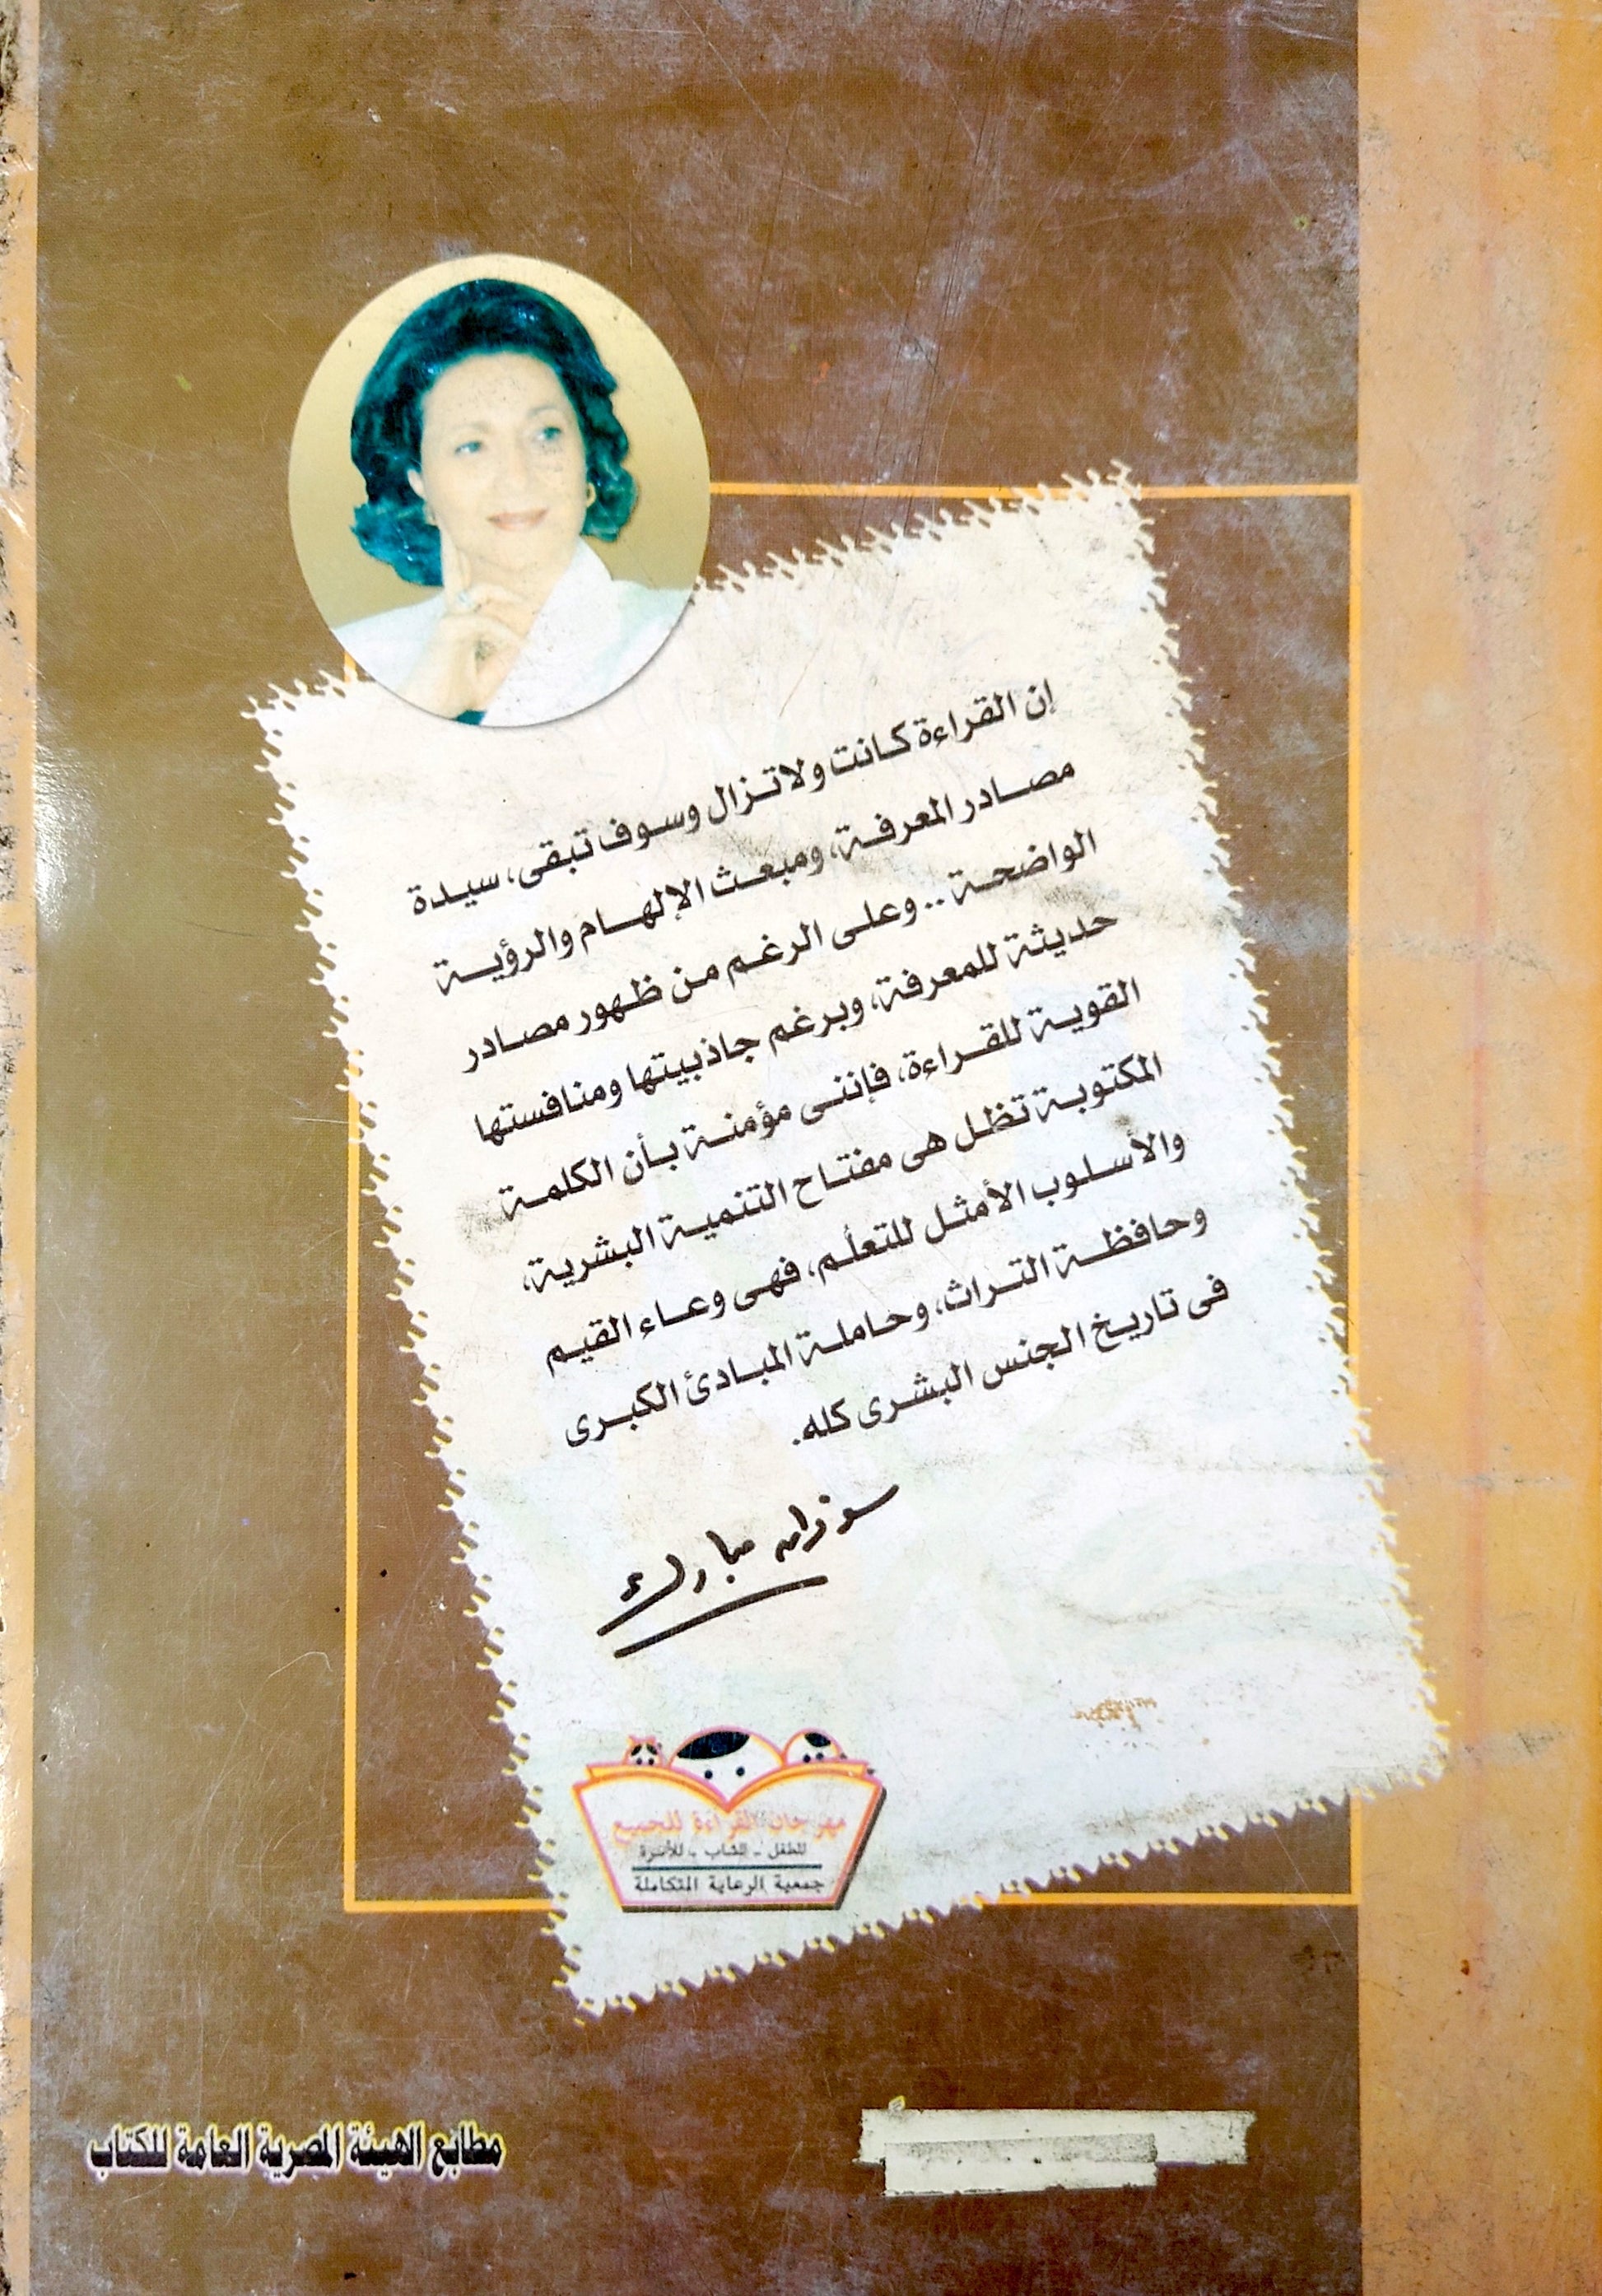 إن القراءة كانت ولاتزال وسوف تبقى، سيدة
مصادر المعرفة، ومبعث الإلهام والرؤية
الواضحة .. وعلى الرغم من ظهور مصادر
حديثة للمعرفة، وبرغم جاذبيتها ومنافستها
القوية للقراءة، فإننى مؤمنة بأن الكلمة
المكتوبة تظل هى مفتاح التنمية البشرية،
والأسلوب الأمثل للتعلم، فهى وعاء القيم
وحافظة التراث، وحاملة المبادئ الكبرى
فى تاريخ الجنس البشرى كله.
سوزان مبارك
مهرجان القراءة للجميع
للطفل - للشاب - للأسرة
جمعية الرعاية المتكاملة
مطابع الهيئة المصرية العامة للكتاب